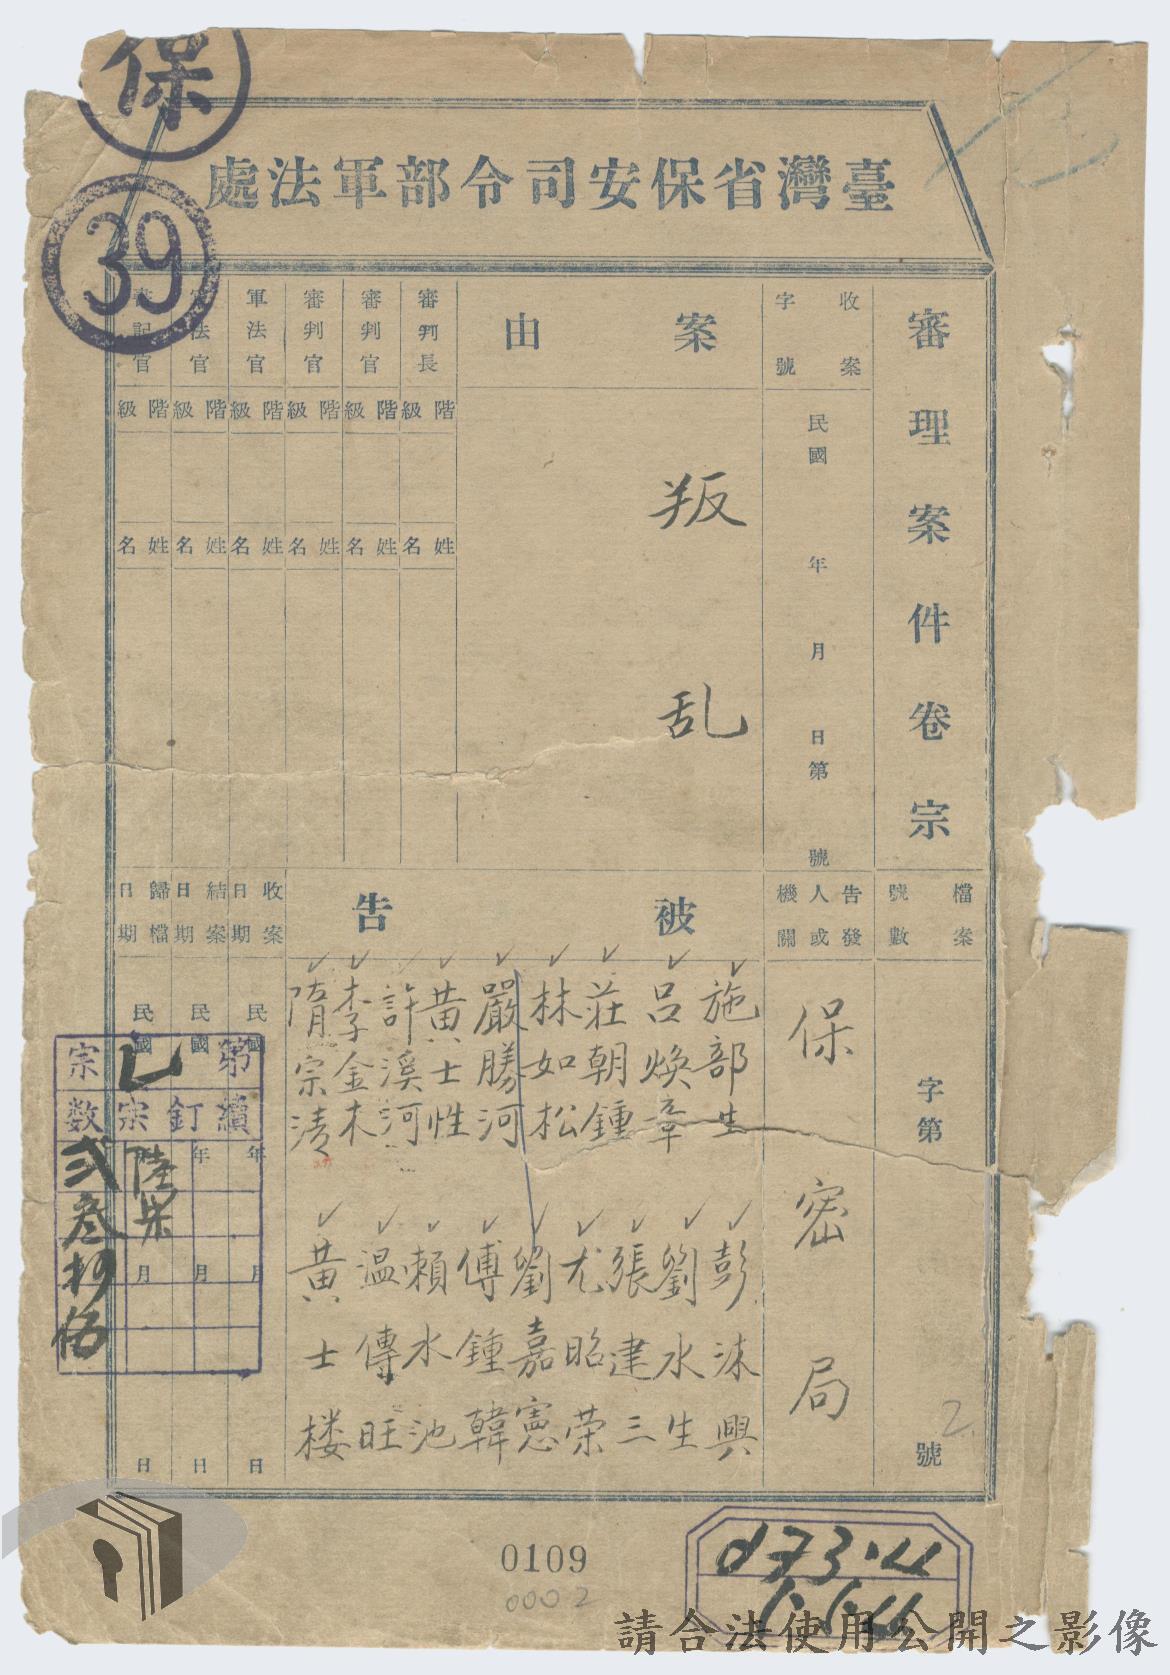 保
39
臺灣省保安司令部軍法處
審理案件卷宗
檔案號數
字第
號
2
收案字號
民國 年 月 日第 號
告發人或機關
保密局
案由
叛乱
被告
施部生
呂煥章
莊朝鍾
林如松
嚴勝河
黃士性
許溪河
李金木
隋宗清
彭沫興
劉水生
張建三
尤昭荣
劉嘉憲
傅鍾韓
賴水池
温傳旺
黃士楼
審判長
階級
姓名
審判官
階級
姓名
審判官
階級
姓名
軍法官
階級
姓名
法官
階級
姓名
記官
階級
姓名
收案日期
民國 年 月 日
結案日期
民國 年 月 日
歸檔日期
民國 月 日
第 宗
續訂宗数
陸柒
弍叁抄伍
0109
0002
273.4
請合法使用公開之影像